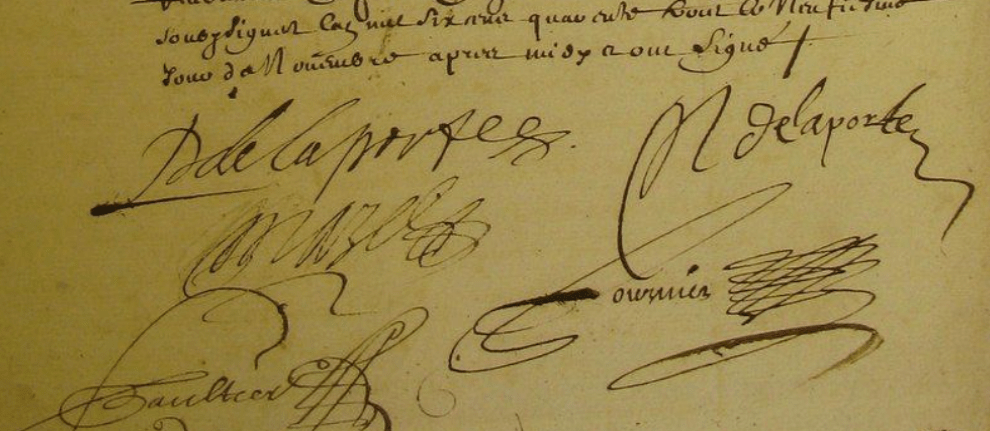 soubzsignez lan mil six cens quarente huit le Neufiesme
Jour de Novembre apres midy et ont signé
D delaporte
N delaporte
Fournier
Gaultier